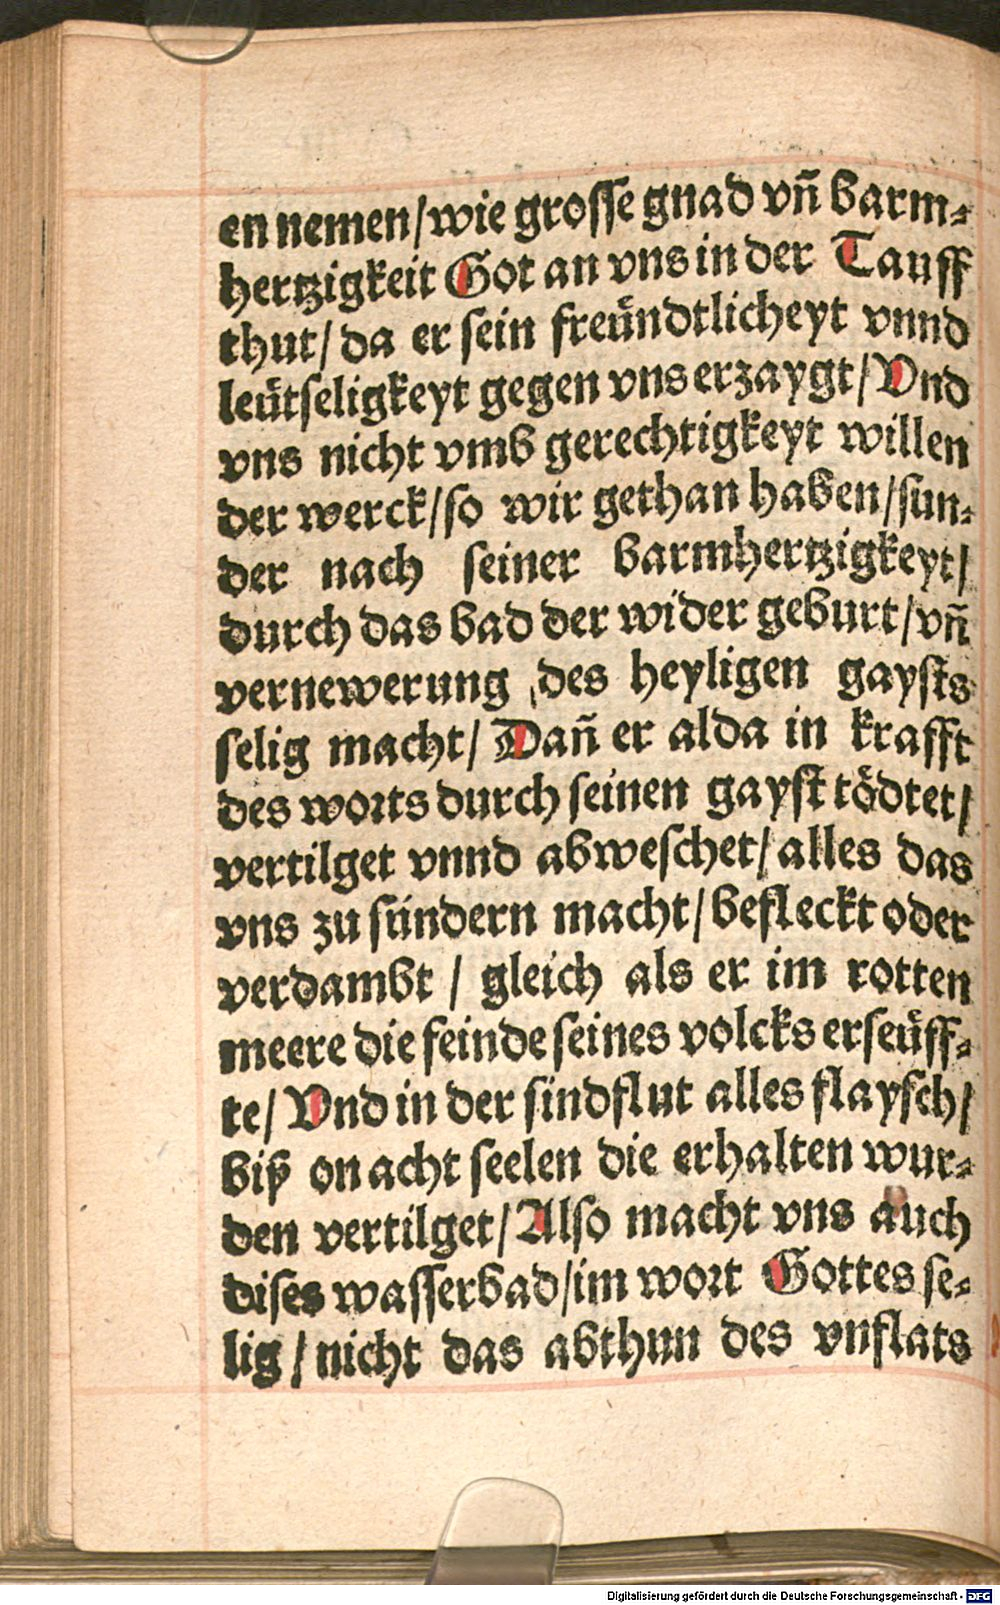 en nemen/wie groſſe gnad vñ barm⸗
hertzigkeit Got an vns in der Tauff
thut/ da er ſein freündtlicheyt vnnd
leütſeligkeyt gegen vns erzaygt/ Vnd
vns nicht vmb gerechtigkeyt willen
der werck/ſo wir gethan haben/ſun⸗
der nach ſeiner barmhertzigkeyt/
durch das bad der wider geburt/vñ
vernewerung des heyligen gayſts
ſelig macht/ Dañ er alda in krafft
des worts durch ſeinen gayſt tödtet/
vertilget vnnd abweſchet/ alles das
vns zu ſündern macht/ befleckt oder
verdambt / gleich als er im rotten
meere die feinde ſeines volcks erſeüff⸗
te/ Vnd in der ſindflut alles flayſch/
biß on acht ſeelen die erhalten wur⸗
den vertilget/ Alſo macht vns auch
diſes waſſerbad/im wort Gottes ſe⸗
lig / nicht das abthun des vnflats
Digitalisierung gefördert durch die Deutsche Forschungsgemeinschaft - DFG